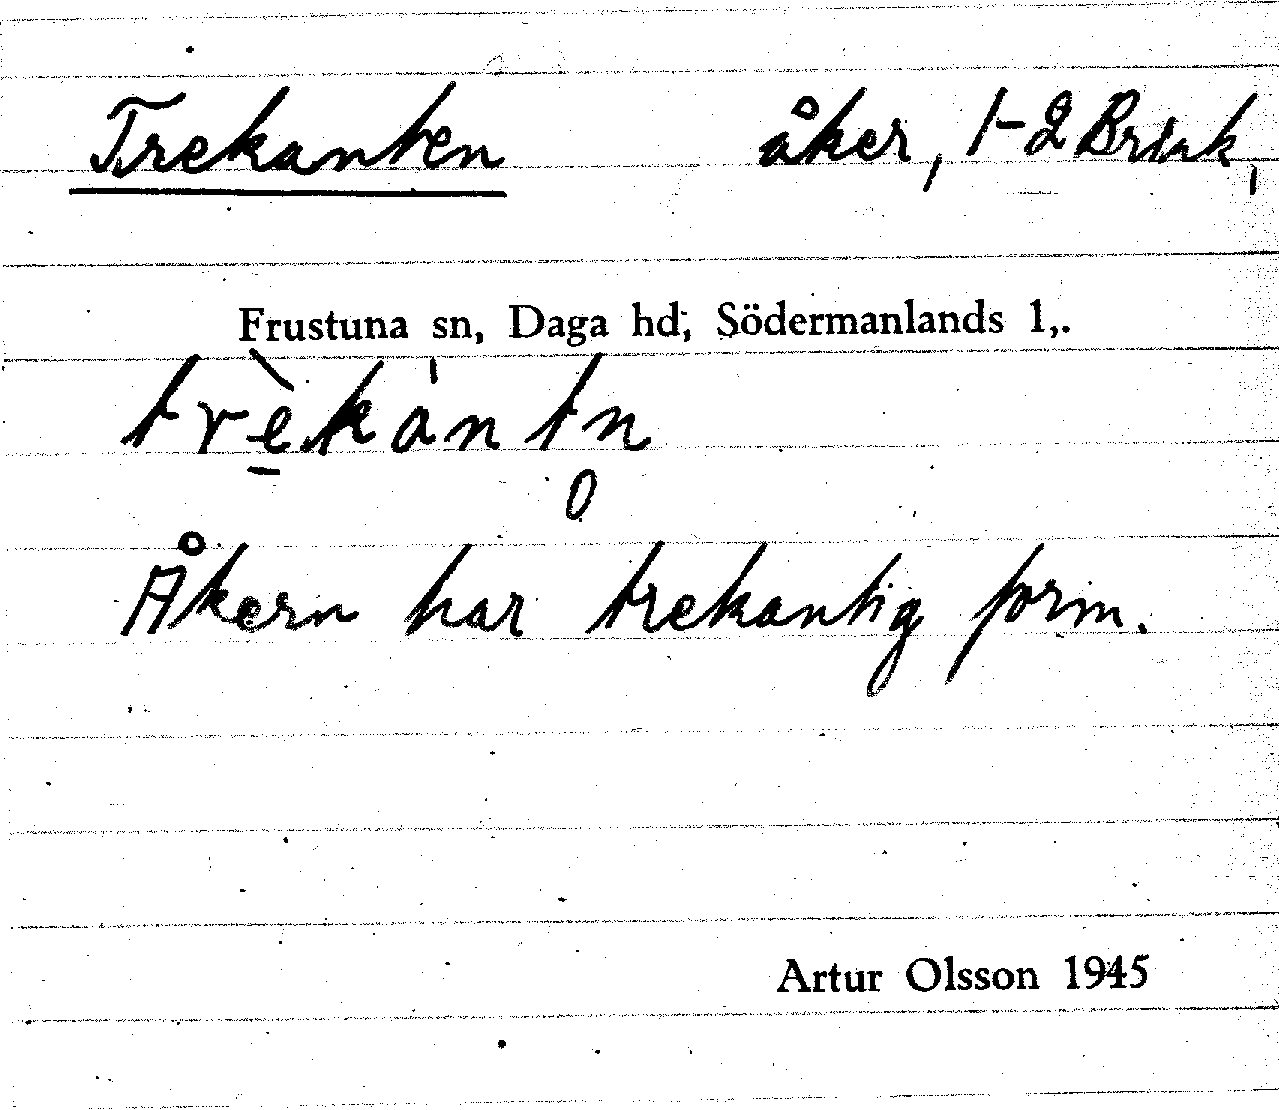 Trekanten åker, 1-2 Brink,
Frustuna sn, Daga hd, Södermanlands l,.
trè̱kán tn̥
Åkern har trekantig form.
Artur Olsson 1945